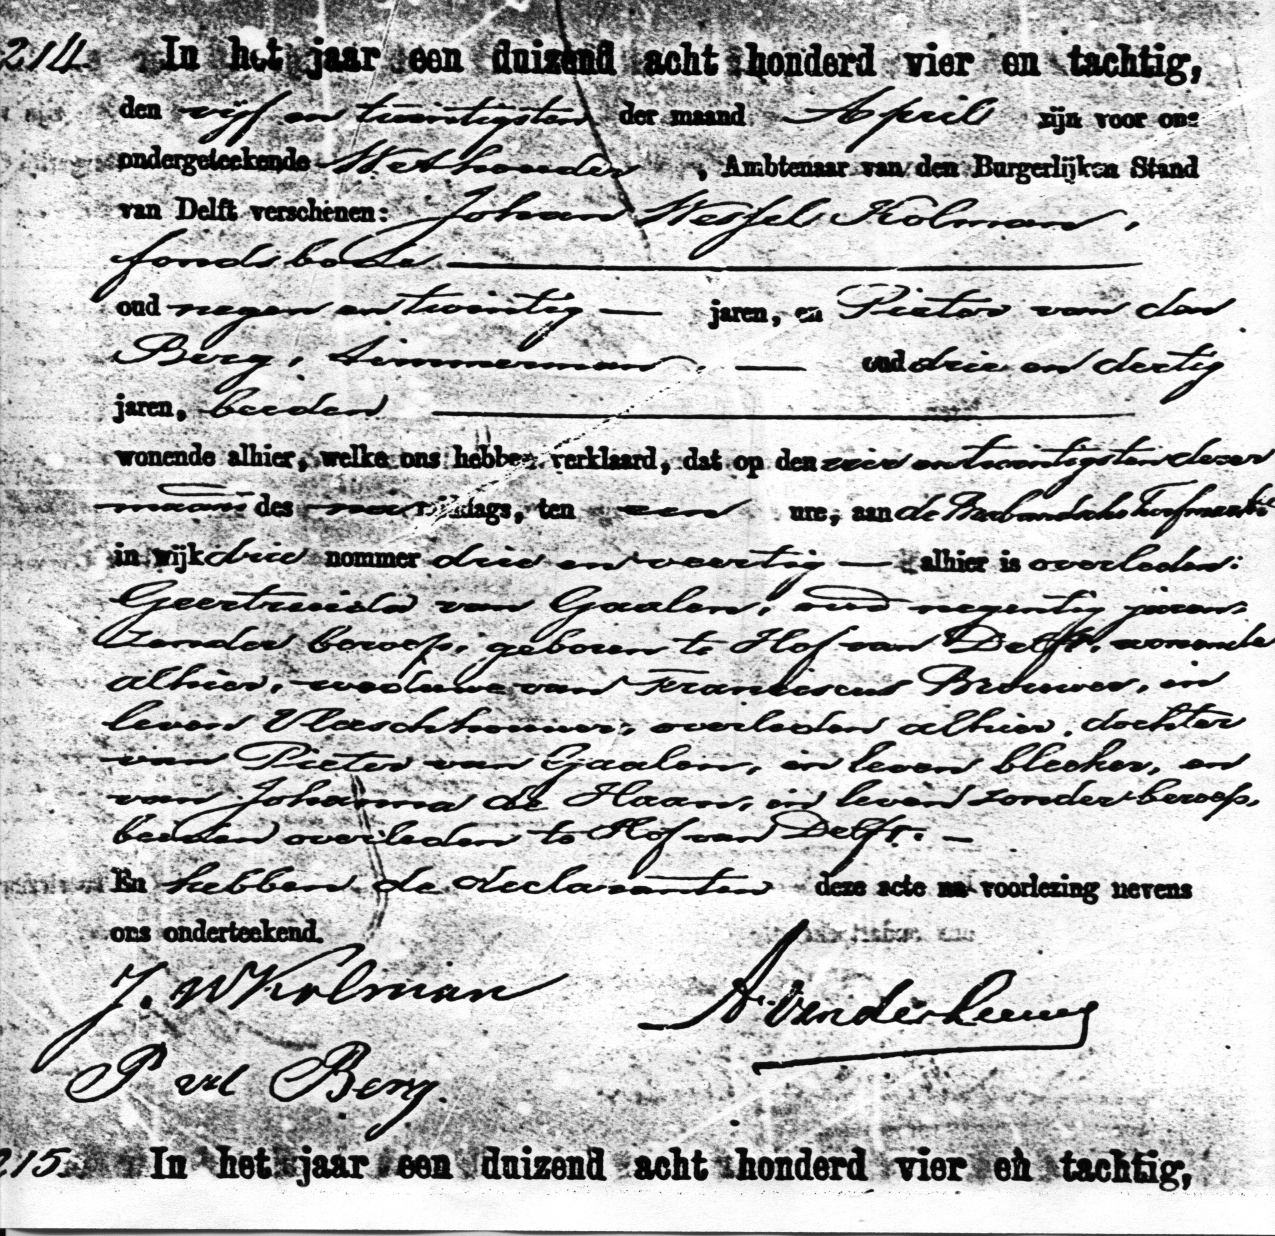 214. In het jaar een duizend acht honderd vier en tachtig,
den vijf en twintigsten der maand April zijn voor ons
ondergeteekende Wethouder, Ambtenaar van den Burgerlijken Stand
van Delft verschenen: Johan Wessel Kolman,
fondsbode
oud negen en twintig — jaren, en Pieter van den
Berg, timmerman, — oud drie en dertig
jaren, beiden
wonende alhier, welke ons hebben verklaard, dat op den vier en twintigsten dezer
maand des namiddags, ten een ure, aan de Brabandsche Turfmarkt
in wijk drie nommer drie en veertig — alhier is overleden:
Geertruida van Gaalen, oud negentig jaren,
zonder beroep, geboren te Hof van Delft, wonende
alhier, weduwe van Franciscus Brouwer, in
leven Vleeschhouwer, overleden alhier, dochter
van Pieter van Gaalen, in leven bleeker, en
van Johanna de Haan, in leven zonder beroep,
beiden overleden te Hof van Delft. —
En hebben de declaranten deze acte na voorlezing nevens
ons onderteekend.
J. W Kolman
A. van der Leeuw
P vd Berg.
215. In het jaar een duizend acht honderd vier en tachtig,